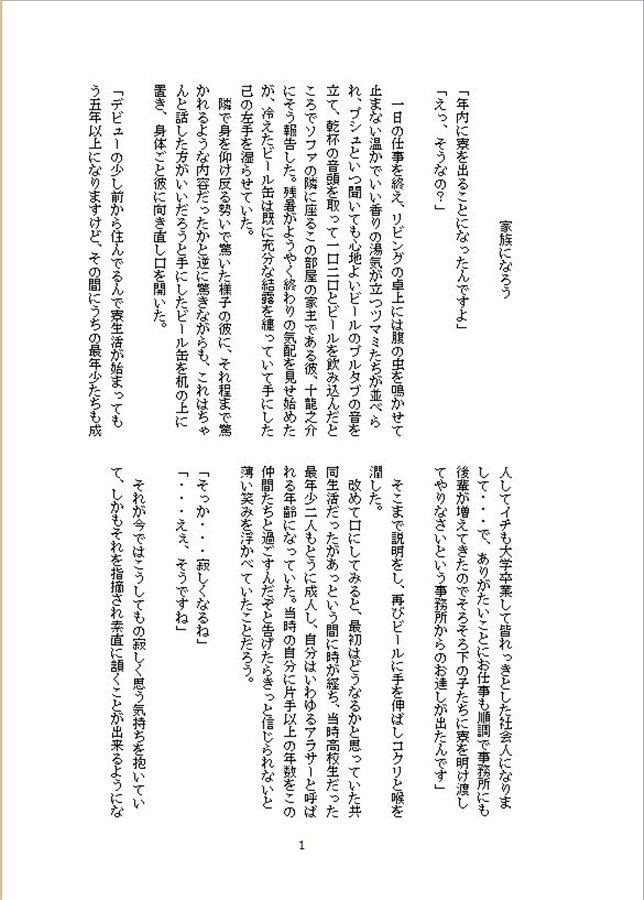 家族になろう
「年内に寮を出ることになったんですよ」
「えっ、そうなの？」
一日の仕事を終え、リビングの卓上には腹の虫を鳴かせて
止まない温かでいい香りの湯気が立つツマミたちが並べら
れ、プシュといつ聞いても心地よいビールのプルタブの音を
立て、乾杯の音頭を取って一口二口とビールを飲み込んだと
ころでソファの隣に座るこの部屋の家主である彼、十龍之介
にそう報告した。残暑がようやく終わりの気配を見せ始めた
が、冷えたビール缶は既に充分な結露を纏っていて手にした
己の左手を湿らせていた。
隣で身を仰け反る勢いで驚いた様子の彼に、それ程まで驚
かれるような内容だったかと逆に驚きながらも、これはちゃ
んと話した方がいいだろうと手にしたビール缶を机の上に
置き、身体ごと彼に向き直し口を開いた。
「デビューの少し前から住んでるんで寮生活が始まっても
う五年以上になりますけど、その間にうちの最年少たちも成
人してイチも大学卒業して皆れっきとした社会人になりま
して・・・で、ありがたいことにお仕事も順調で事務所にも
後輩が増えてきたのでそろそろ下の子たちに寮を明け渡し
てやりなさいという事務所からのお達しが出たんです」
そこまで説明をし、再びビールに手を伸ばしコクリと喉を
潤した。
改めて口にしてみると、最初はどうなるかと思っていた共
同生活だったがあっという間に時が経ち、当時高校生だった
最年少二人もとうに成人し、自分はいわゆるアラサーと呼ば
れる年齢になっていた。当時の自分に片手以上の年数をこの
仲間たちと過ごすんだぞと告げたらきっと信じられないと
薄い笑みを浮かべていたことだろう。
「そっか・・・寂しくなるね」
「・・・えぇ、そうですね」
それが今ではこうしてもの寂しく思う気持ちを抱いてい
て、しかもそれを指摘され素直に頷くことが出来るようにな
1